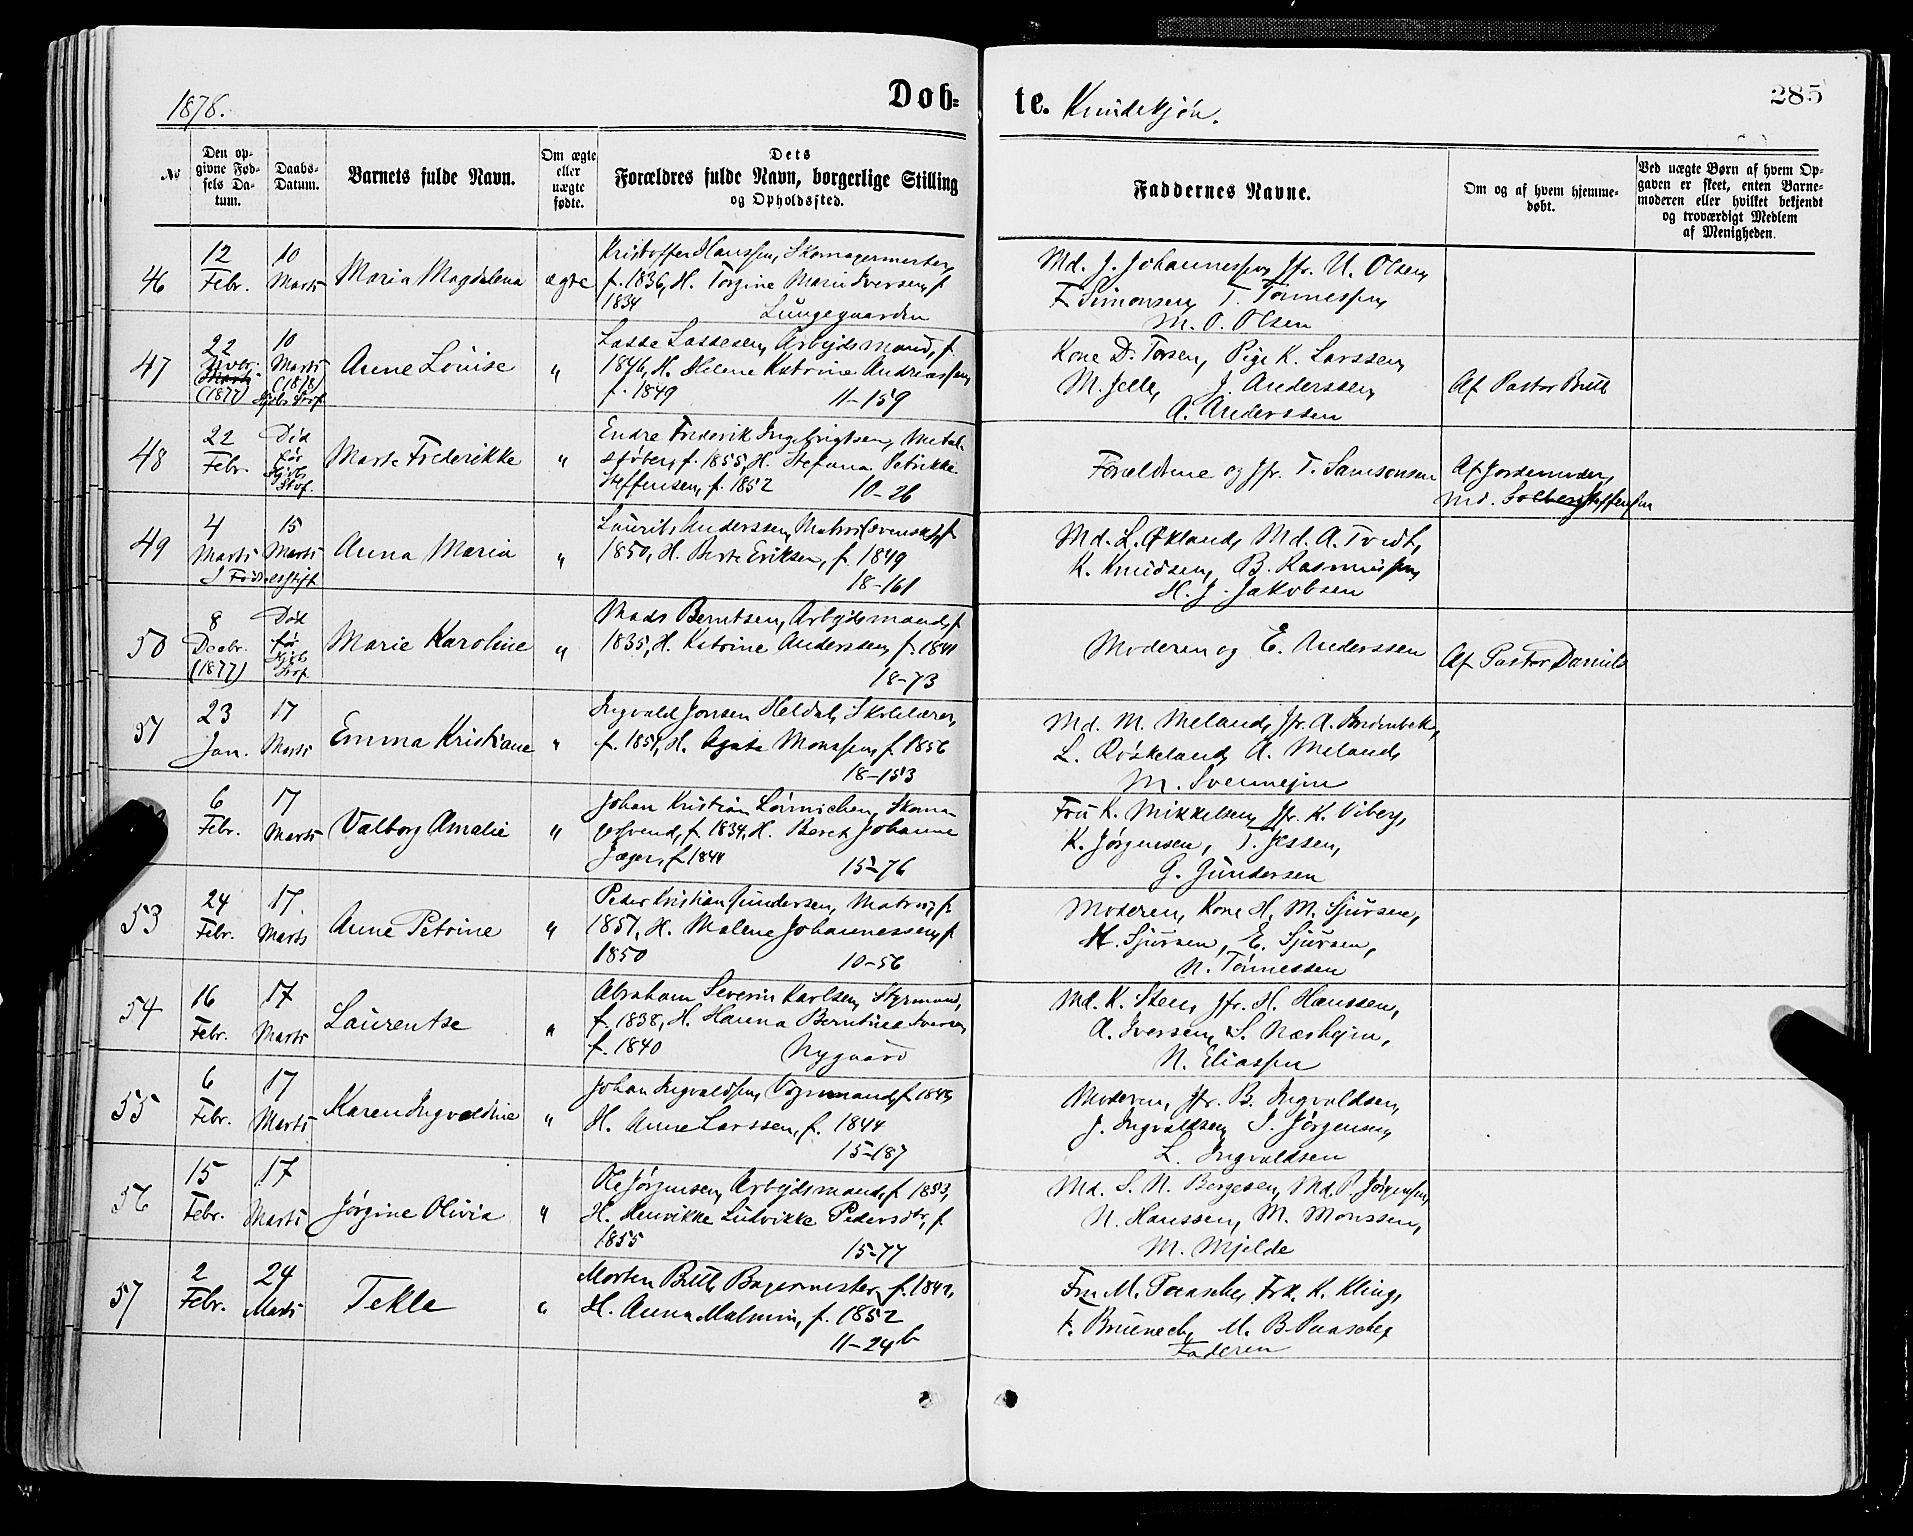 1878.
Døb=
te. Kvindekjøn.
285
No
Den op-
givne Fød-
sels Da-
tum.
Daabs-
Datum.
Barnets fulde Navn.
Om ægte
eller
uægte
fødte.
Dets
Forældres fulde Navn, borgerlige Stilling
og Opholdssted.
Faddernes Navne.
Om og af hvem hjemme-
døbt.
Ved uægte Børn af hvem Op-
gaven er skeet, enten Barne-
moderen eller hvilket bekjendt
og troværdigt Medlem
af Menigheden.
46
12
Febr.
10
Marts
Maria Magdalena
ægte
Kristoffer Hanssen, Skomagermester,
f. 1836, H. Torgine Marie Iversen, f
1834 Lungegaarden
Md. J. Johannessen, Jfr. U. Olsen,
F. Simonsen, T. Tønnessen,
M. O. Olsen
47
22
Novbr.
Marts
(1877)
10
Marts
(1878)
Anne Louise
"
Lasse Lassesen, Arbejdsmand, f
1846, H. Helene Katrine Andreassen,
f. 1849 11-159
Kone D. Torsen, Pige K. Larssen,
M. Jelle, J. Anderssen,
A. Anderssen
Af Pastor Bull
48
22
Febr.
Død
før
Marte Frederikke
"
Endre Frederik Ingebrigtsen, Metal-
støber, f. 1855, H. Stefana Petrikke
Steffensen, f. 1852 10-26
Forældrene og Jfr. T. Samsonsen
Af Jordemoder,
Md. Solberg Steffensen
49
4
Marts
I Fødselsstift
15
Marts
Anna Maria
"
Laurits Anderssen, Matros (svensk), f
1850, H. Berte Eriksen, f. 1849
18-161
Md. L. Økland, Md. A. Tvedt,
K. Knudsen, B. Rasmussen,
H. J. Jakobsen
50
8
Decbr.
(1877)
Død
før
Marie Karoline
"
Mads Berntsen, Arbejdsmand, f
1835, H. Katrine Anderssen, f. 1841
18-73
Moderen og E. Anderssen
Af Pastor Daniels
51
23
Jan.
17
Marts
Emma Kristiane
"
Ingvald Jonsen Heldal, Skolelærer,
f. 1851, H. Agate Monssen, f. 1856
18-153
Md. M. Meland, Jfr. A.
L. Røskeland, A. Meland,
M.
6
Febr.
17
Marts
Valborg Amalie
"
Johan Kristian Skoma-
gersvend, f. 1834, H. Beret Johanne
Jæger, f 1844 15-76
Fru K. Mikkelsen, Jfr. K. Viberg,
K. Jørgensen, T. Jessen,
G. Gundersen
53
24
Febr.
17
Marts
Anne Petrine
"
Peder Kristian Gundersen, Matros, f.
1851, H. Malene Johannessen, f
1850 10-56
Moderen, Kone H. M. Sjursen,
H. Sjursen, E. Sjursen,
N. Tønnessen
54
16
Febr.
17
Marts
Laurentse
"
Abraham Severin Karlsen, Styrmand,
f. 1838, H. Hanna Berntine Iversen
f. 1840 Nygaard
Md. K. Steen, Jfr. H. Hanssen,
A. Iversen, S. Næshejm,
N. Eliassen
55
6
Febr.
17
Marts
Karen Ingvaldine
"
Johan Ingvaldsen, Vognmand, f. 1843,
H. Anne Larssen, f. 1844
15-187
Moderen, Jfr. B. Ingvaldsen,
J. Ingvaldsen, J. Jørgensen,
L. Ingvaldsen
56
15
Febr.
17
Marts
Jørgine Olivia
"
Ole Jørgensen, Arbejdsmand, f 1853,
H. Henrikke Ludvikke Pedersdtr., f
1855 15-77
Md. S. N. Børgesen, Md. P. Jørgensen,
N. Hanssen, M. Monssen,
M. Mjelde
57
2
Febr.
24
Marts
Tekla
"
Morten Bull, Bagermester, f. 1842,
H. Anna Malmin, f. 1852
11-24b
Fru M. Paasche, Frk. K. Kling,
F. Brunech, M. B. Paasche,
Faderen